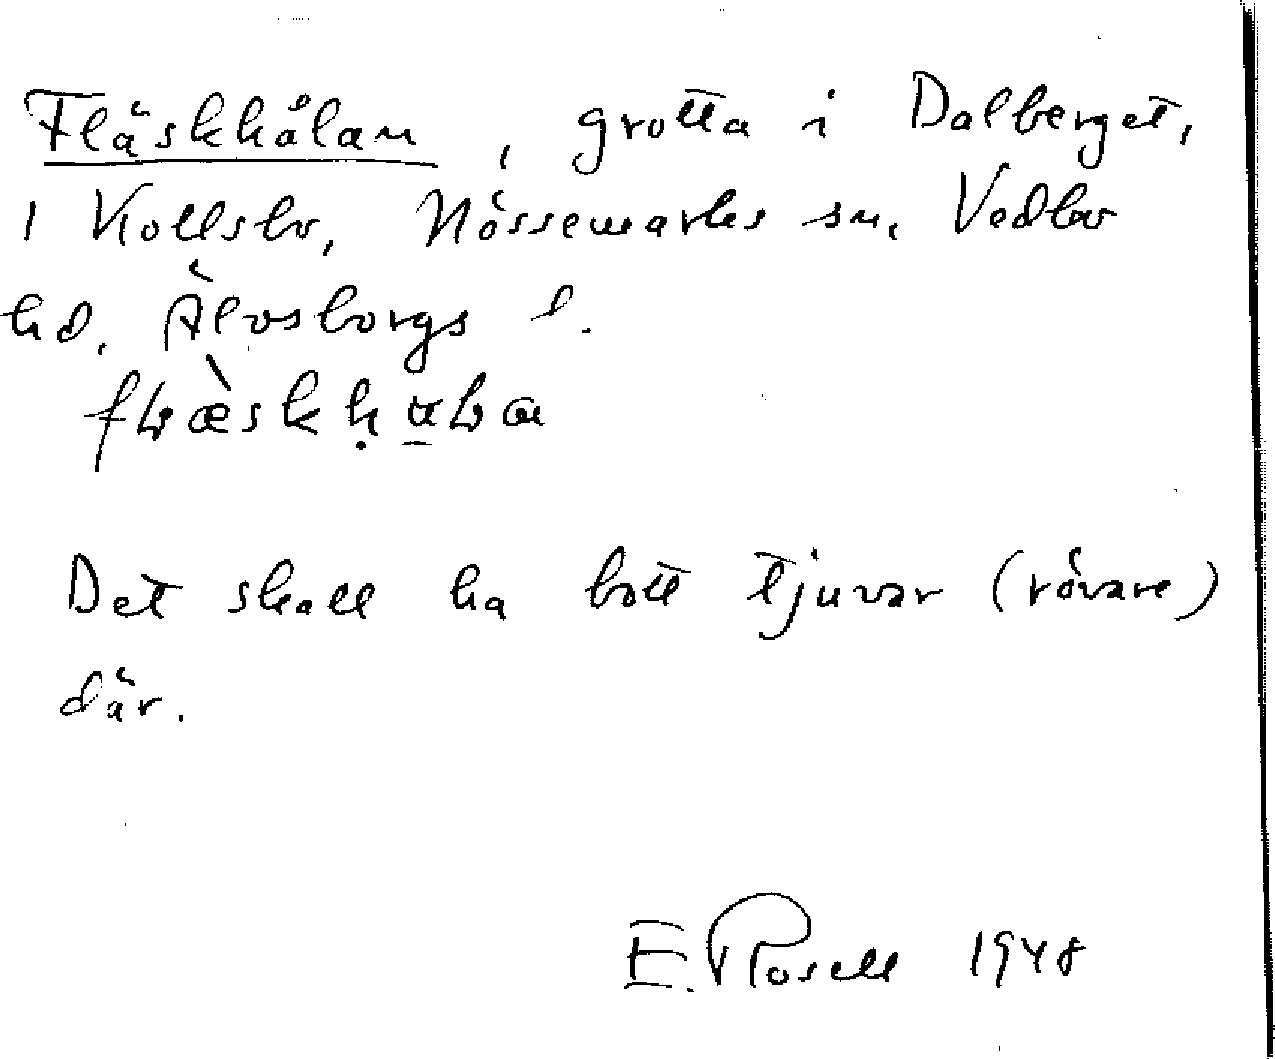 Fläskhålan, grotta i Dalberget,
i Kollsbr, Nössemarks sn, Vedbo
hd. Älvsborgs l.
Det skall ha bott tjuvar (rövare)
där.
E. Rosell 1948